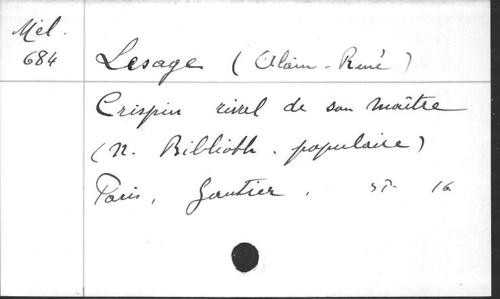 Mél.
684
Lesage (Alain-René)
Crispin rival de son maître
(N. Biblioth. populaire)
Paris, Gautier, 16